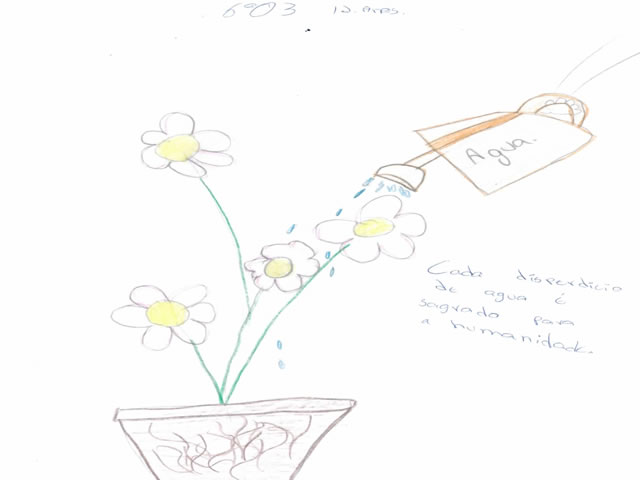 6º03 12 anos.
Agua.
Cada disperdicio
de agua é
sagrado para
a humanidade.